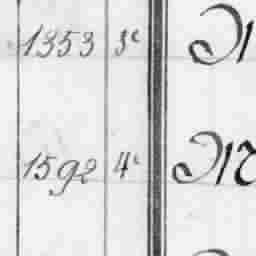 1353 3e
1592 4e